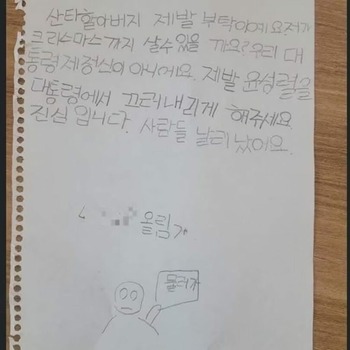 산타할아버지 제발 부탁이에요저가
크리스마스까지 살수있을 까요?우리 대
통령제정신이아니에요. 제발 윤성렬을
대통령에서 끄러내리게 해주세요
진심입니다. 사람들 날리났어요.
올림
물러가